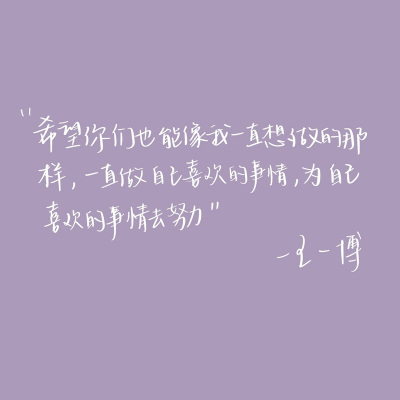 "希望你们也能像我一直想做的那
样,一直做自己喜欢的事情,为自己
喜欢的事情去努力"
—王一博